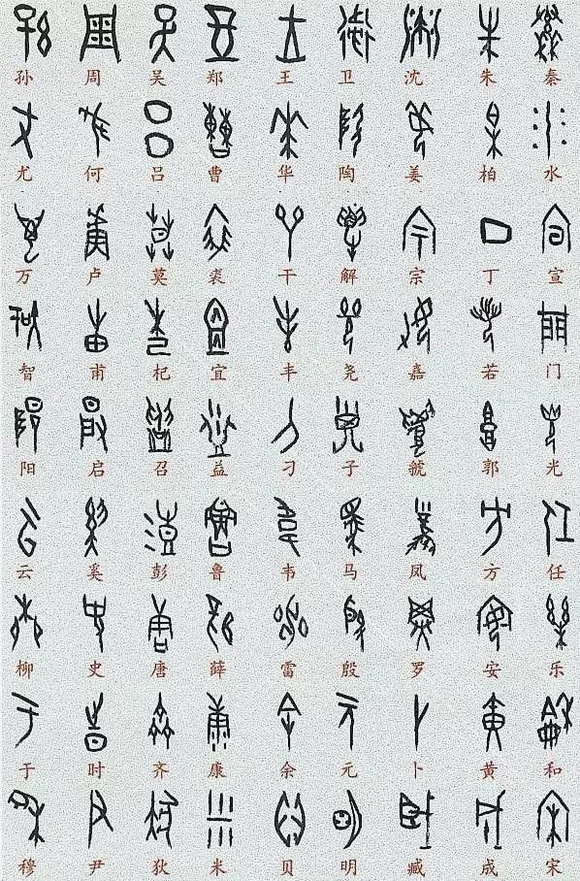 孙 周 吴 郑 王 卫 沈 朱 秦
尤 何 吕 曹 华 陶 姜 柏 水
万 卢 莫 裘 干 解 宗 丁 宣
智 甫 杞 宜 丰 尧 嘉 若 门
阳 启 召 益 刁 子 虢 郭 光
云 奚 彭 鲁 韦 马 凤 方 任
柳 史 唐 薛 雷 殷 罗 安 乐
于 时 齐 康 余 元 卜 黄 和
穆 尹 狄 米 贝 明 臧 成 宋